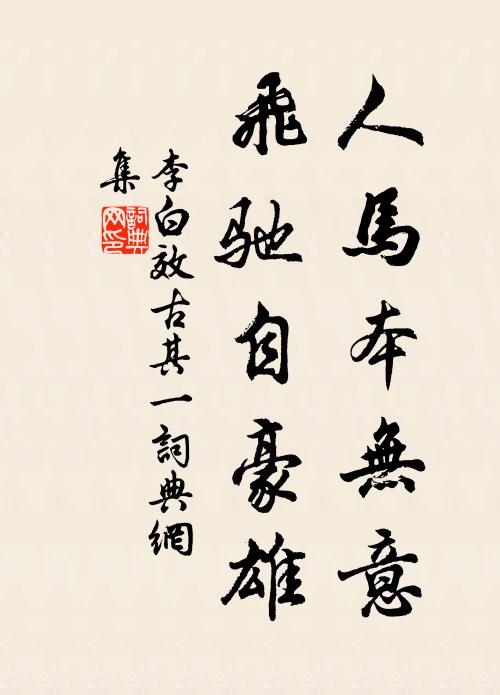 人馬本無意
飛馳自豪雄
李白效古其一詞典網
集
詞典
网印